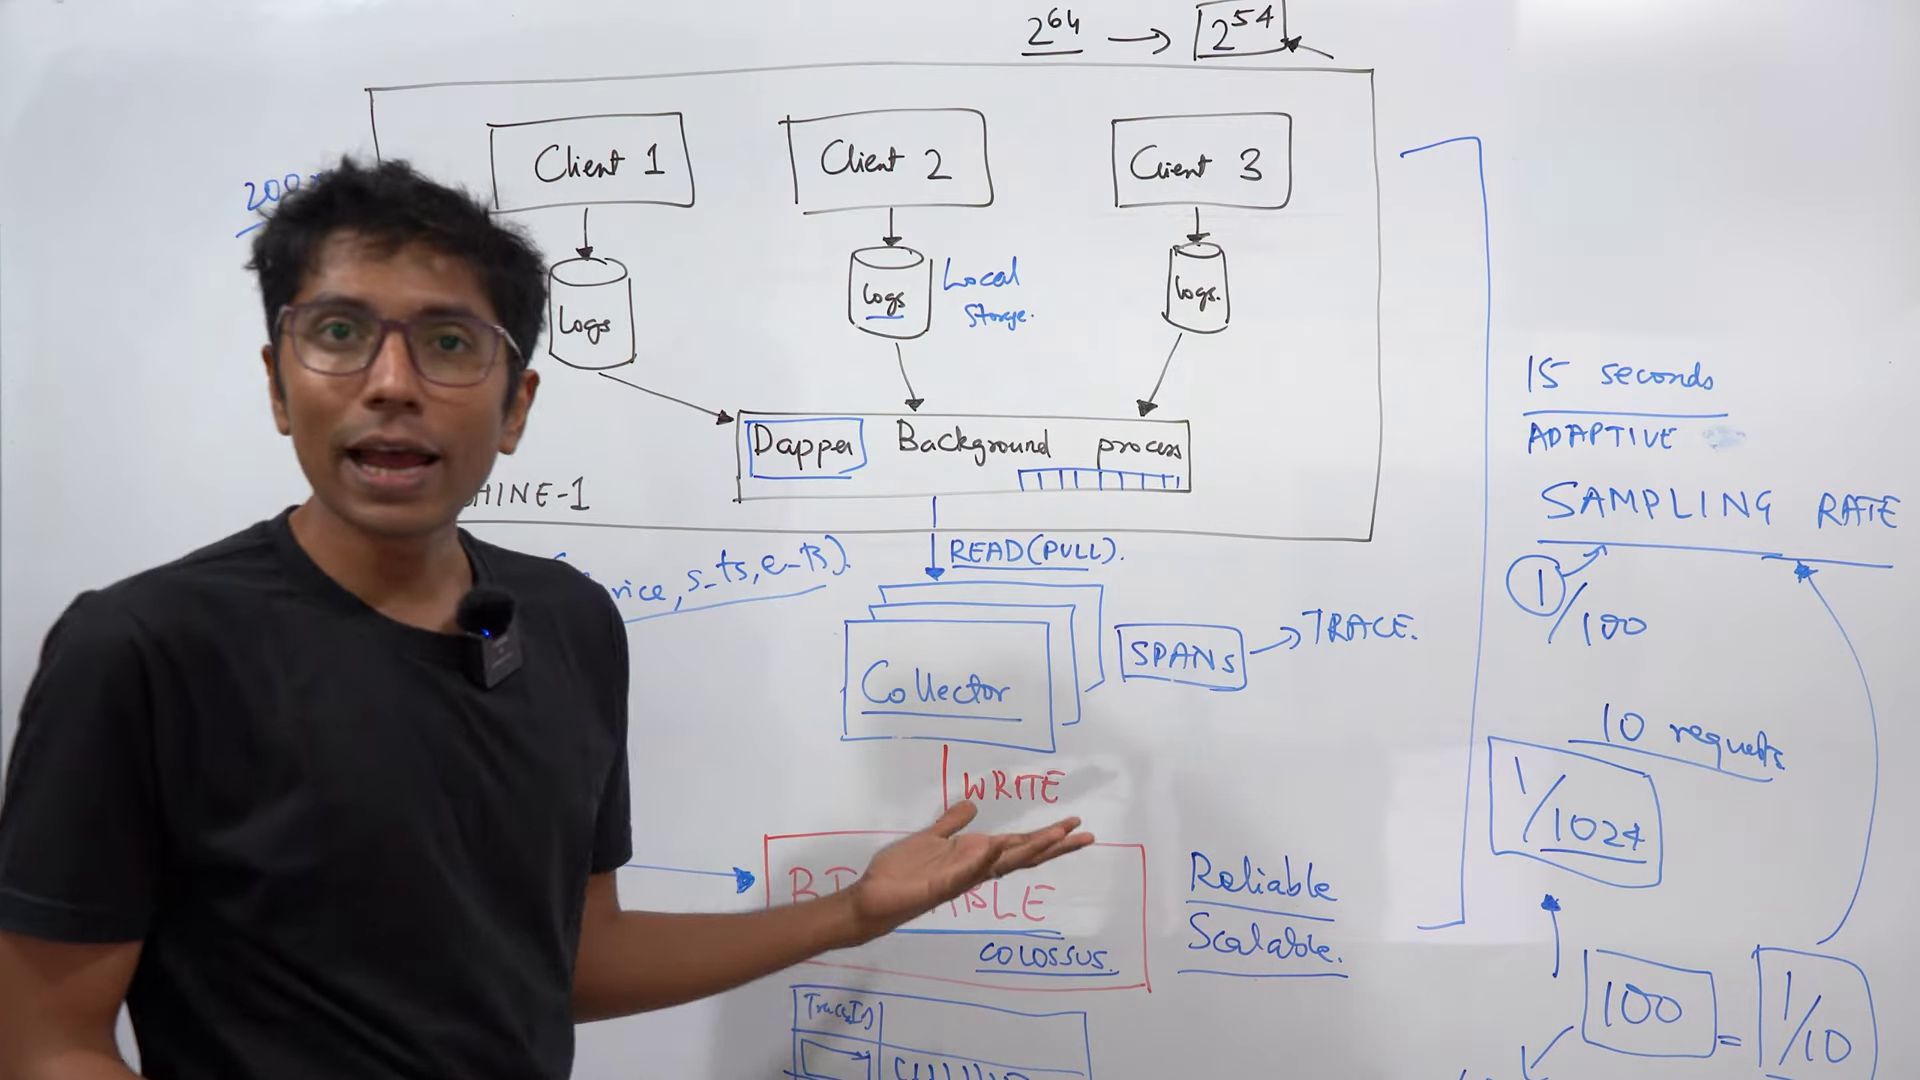 2^64 → 2^54
Client 1
Client 2
Client 3
200
Logs
Logs
Logs.
Local
Storage.
Dapper Background process
HINE-1
READ(PULL).
rice, s_ts, e_ts).
Collector
SPANs → TRACE.
WRITE
B ABLE
COLOSSUS.
Reliable
Scalable.
TraceID
15 seconds
ADAPTIVE
SAMPLING RATE
1/100
10 requests
1/1024
100 = 1/10